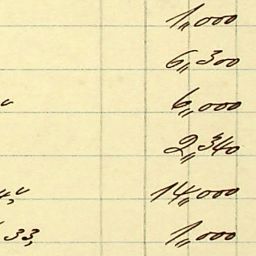 1,,000
6,,300
6,,000
2,,340
14,,000
33, 1,,000